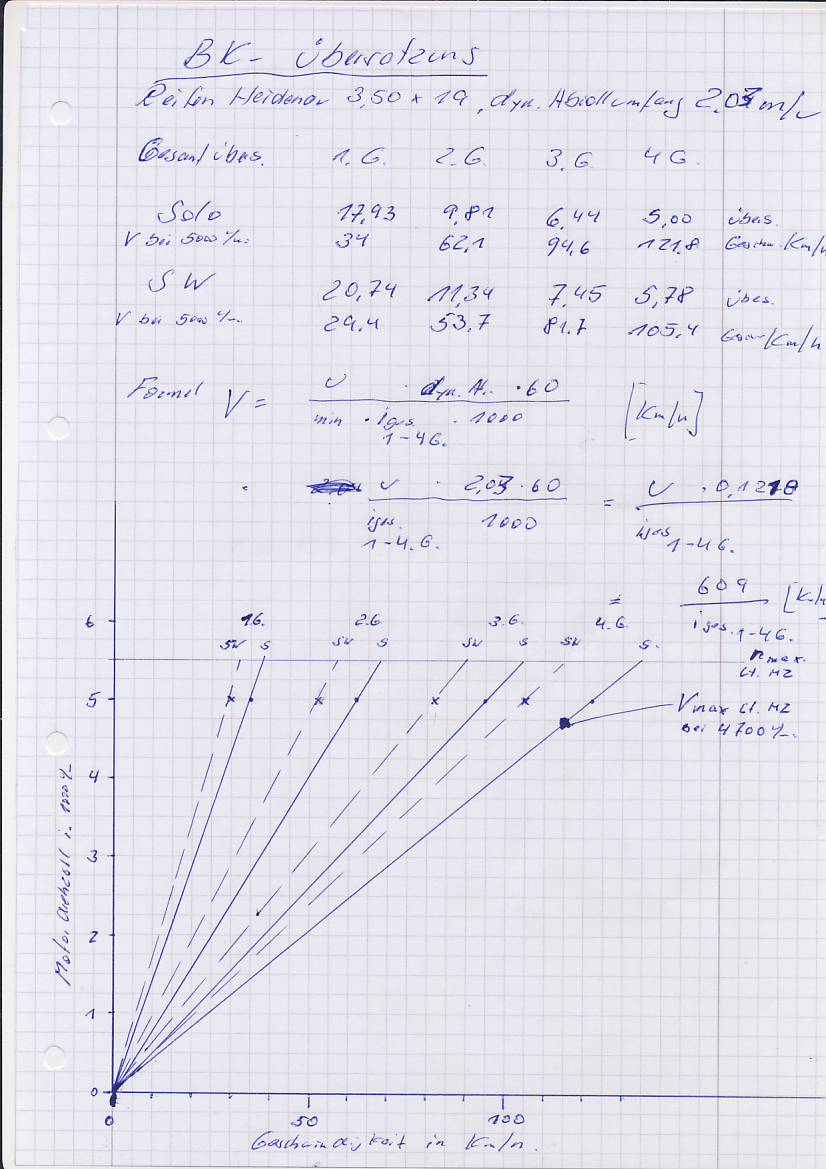 BK - Übersetzung
Reifen Heidenau 3,50 x 19, dyn. Abrollumfang 2,03 m/U
Gesamtübers. 1. G. 2. G. 3. G 4 G.
Solo 17,93 9,81 6,44 5,00 übers.
V bei 5000 1/min 34 62,1 94,6 121,8 Geschw. Km/h
SW 20,74 11,34 7,45 5,78 übers.
V bei 5000 1/min 29.4 53,7 81.7 105,4 Geschw Km/h
Formel V = U · dyn. Ar. · 60 [Km/h]
min · iges. · 1000
1-4G.
U · 2,03 · 60 = U · 0,1218
iges. 1000 iges
1-4. G. 1-4 G.
= 609 [Km/h
iges. 1-4G.
6 1G. 2.G 3.G. 4.G.
SW S SW S SW S SW S.
nmax.
lt. HZ
5 Vmax lt. HZ
bei 4700 1/min
4
3
2
1
0
Motordrehzahl in 1000 1/min
0 50 100
Geschwindigkeit in Km/h.